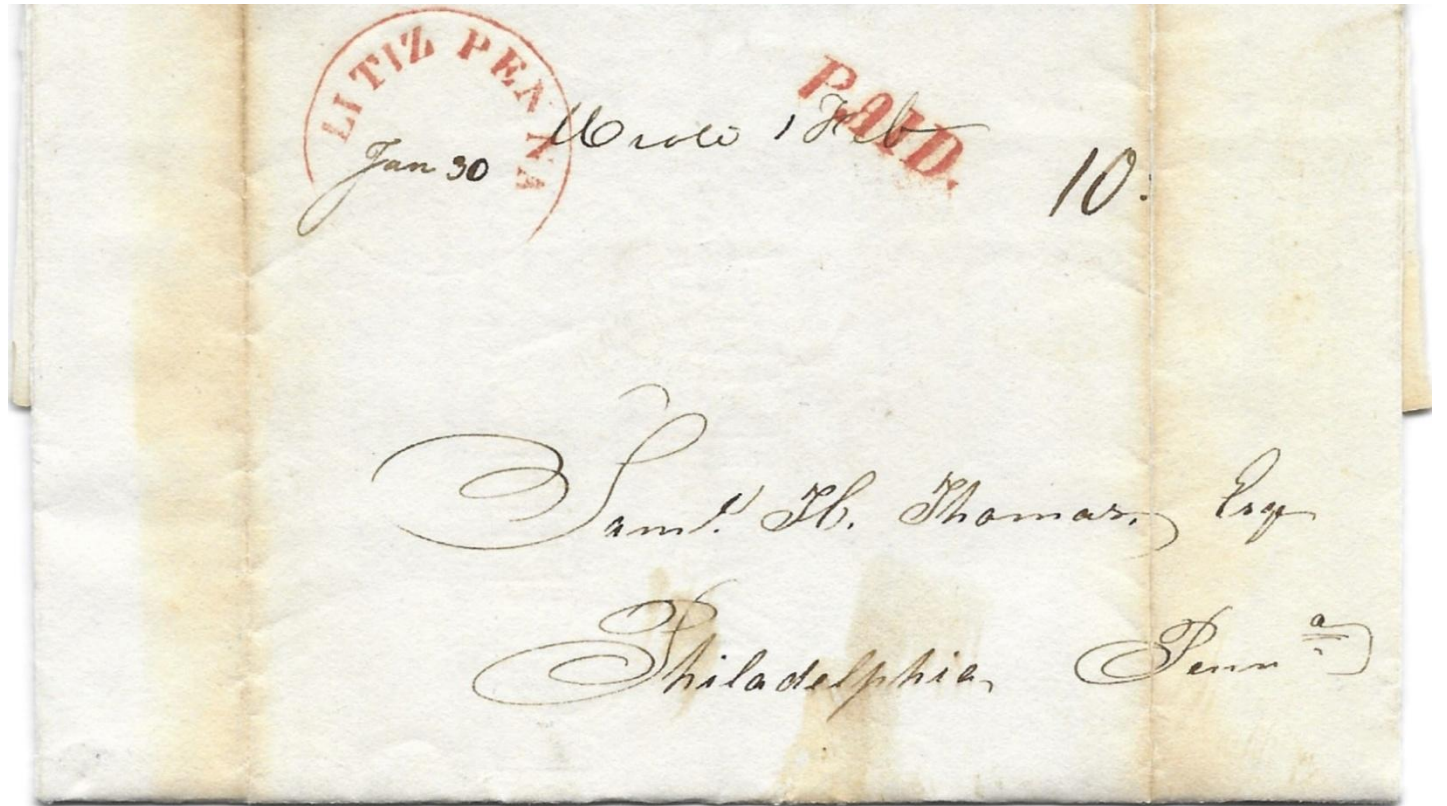 LITIZ PENNA
Jan 30
1 Feb
PAID.
10.
Saml. H. Thomas, Esq
Philadelphia, Penna